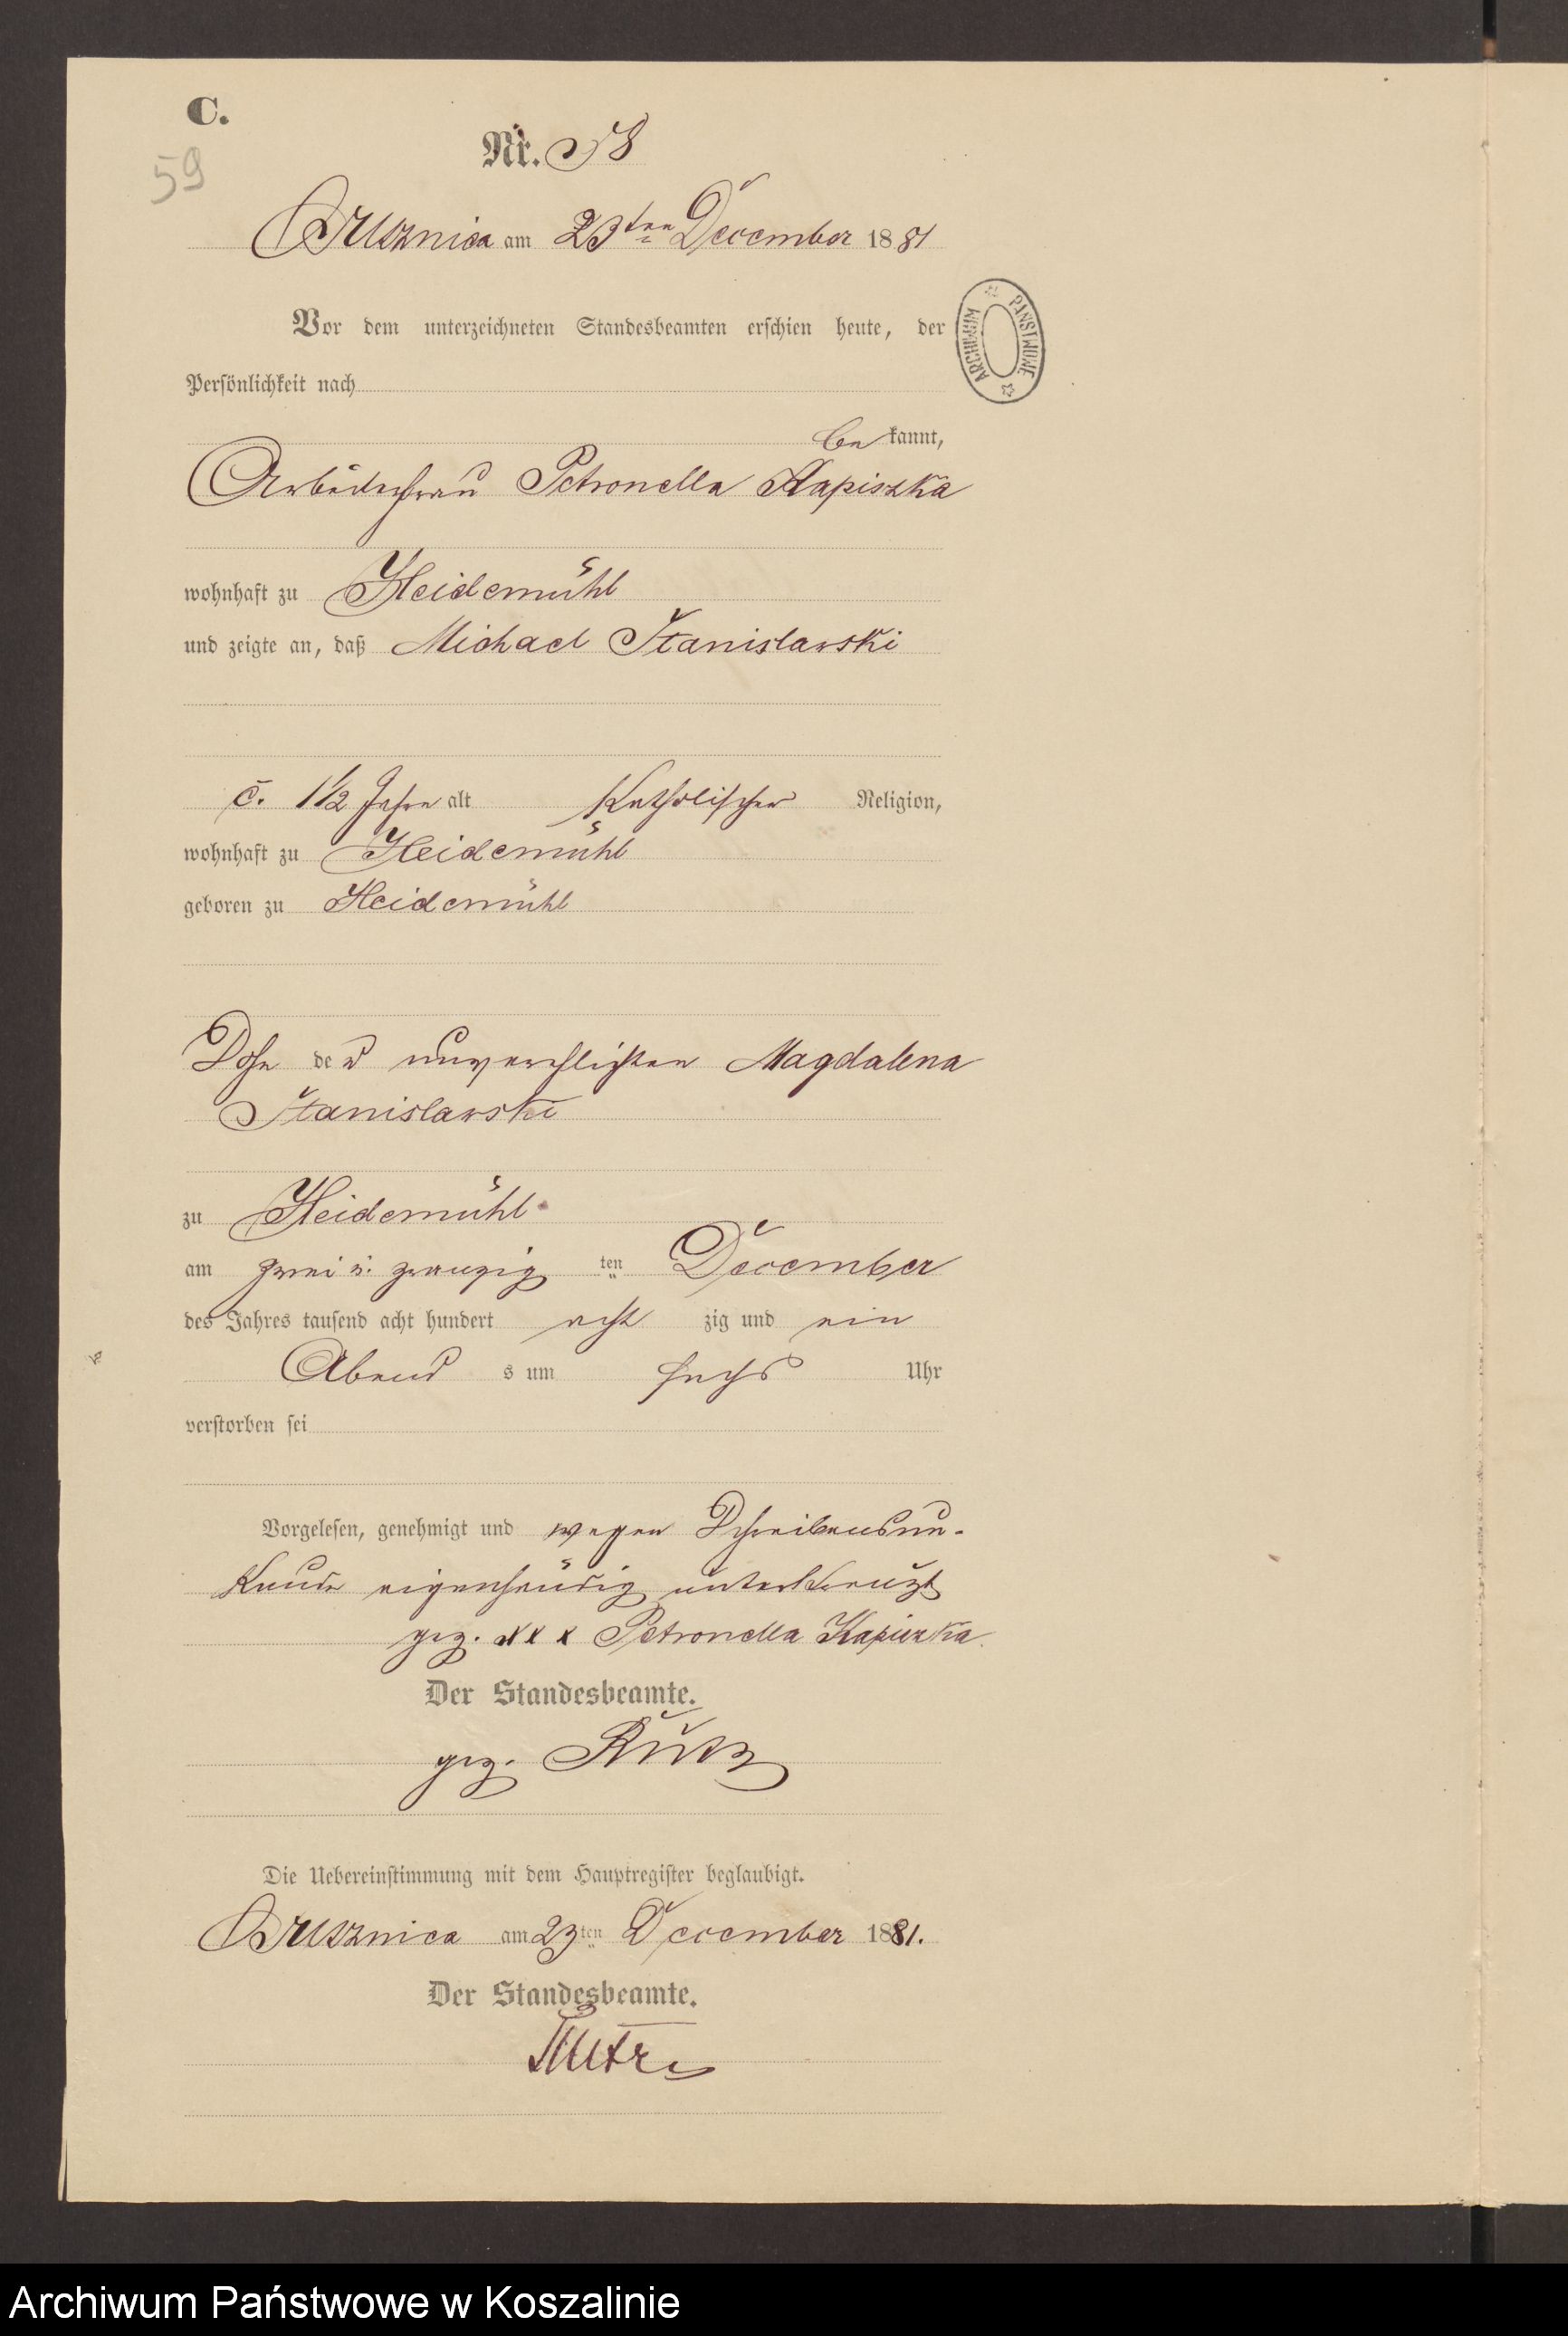 C.
59
Nr. 58
Bruznica am 23ten December 1881
Vor dem unterzeichneten Standesbeamten erschien heute, der
Persönlichkeit nach
be kannt,
Arbeiterfrau Petronella Kapiszka
wohnhaft zu Heidemühl
und zeigte an, daß Michael Stanislawski
c. 1 1/2 Jahre alt Katholischer Religion,
wohnhaft zu Heidemühl
geboren zu Heidemühl
Sohn der unverehlichten Magdalena
Stanislawski
zu Heidemühl
am zwei u. zwanzig ten December
des Jahres tausend acht hundert acht zig und ein
Abend s um sechs Uhr
verstorben sei
Vorgelesen, genehmigt und wegen Schreibensun-
kunde eigenhändig unterkreuzt
gez. xxx Petronella
Der Standesbeamte.
gez.
Die Uebereinstimmung mit dem Hauptregister beglaubigt.
Bruznica am 23ten December 1881.
Der Standesbeamte.
ARCHIWUM PAŃSTWOWE
Archiwum Państwowe w Koszalinie